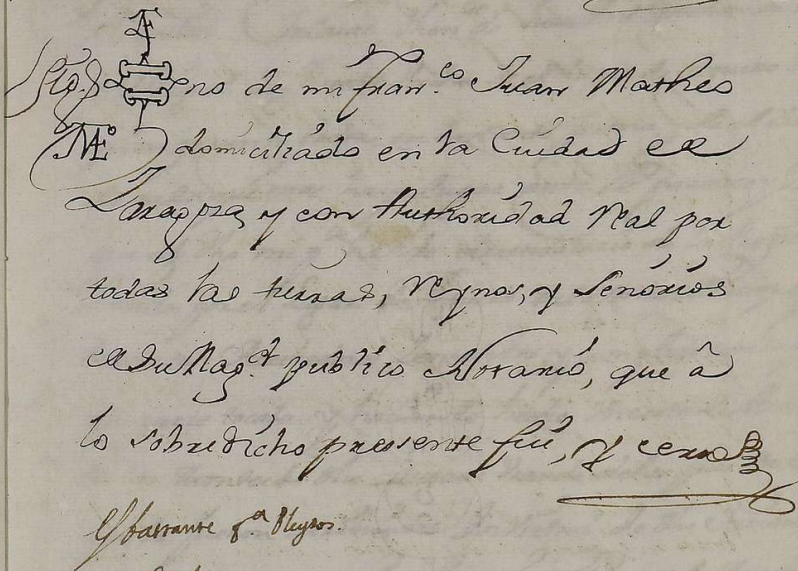 Sig no de mi Fran.co Juan Matheo
domiciliado en la Ciudad de
Zaragoza, y con Authoridad Real por
todas las tierras, Reynos, y Señorios
de Su Mag.d publico Notario, que à
lo sobredicho presente fui, y cerre
Y bastante p.a Pleytos.